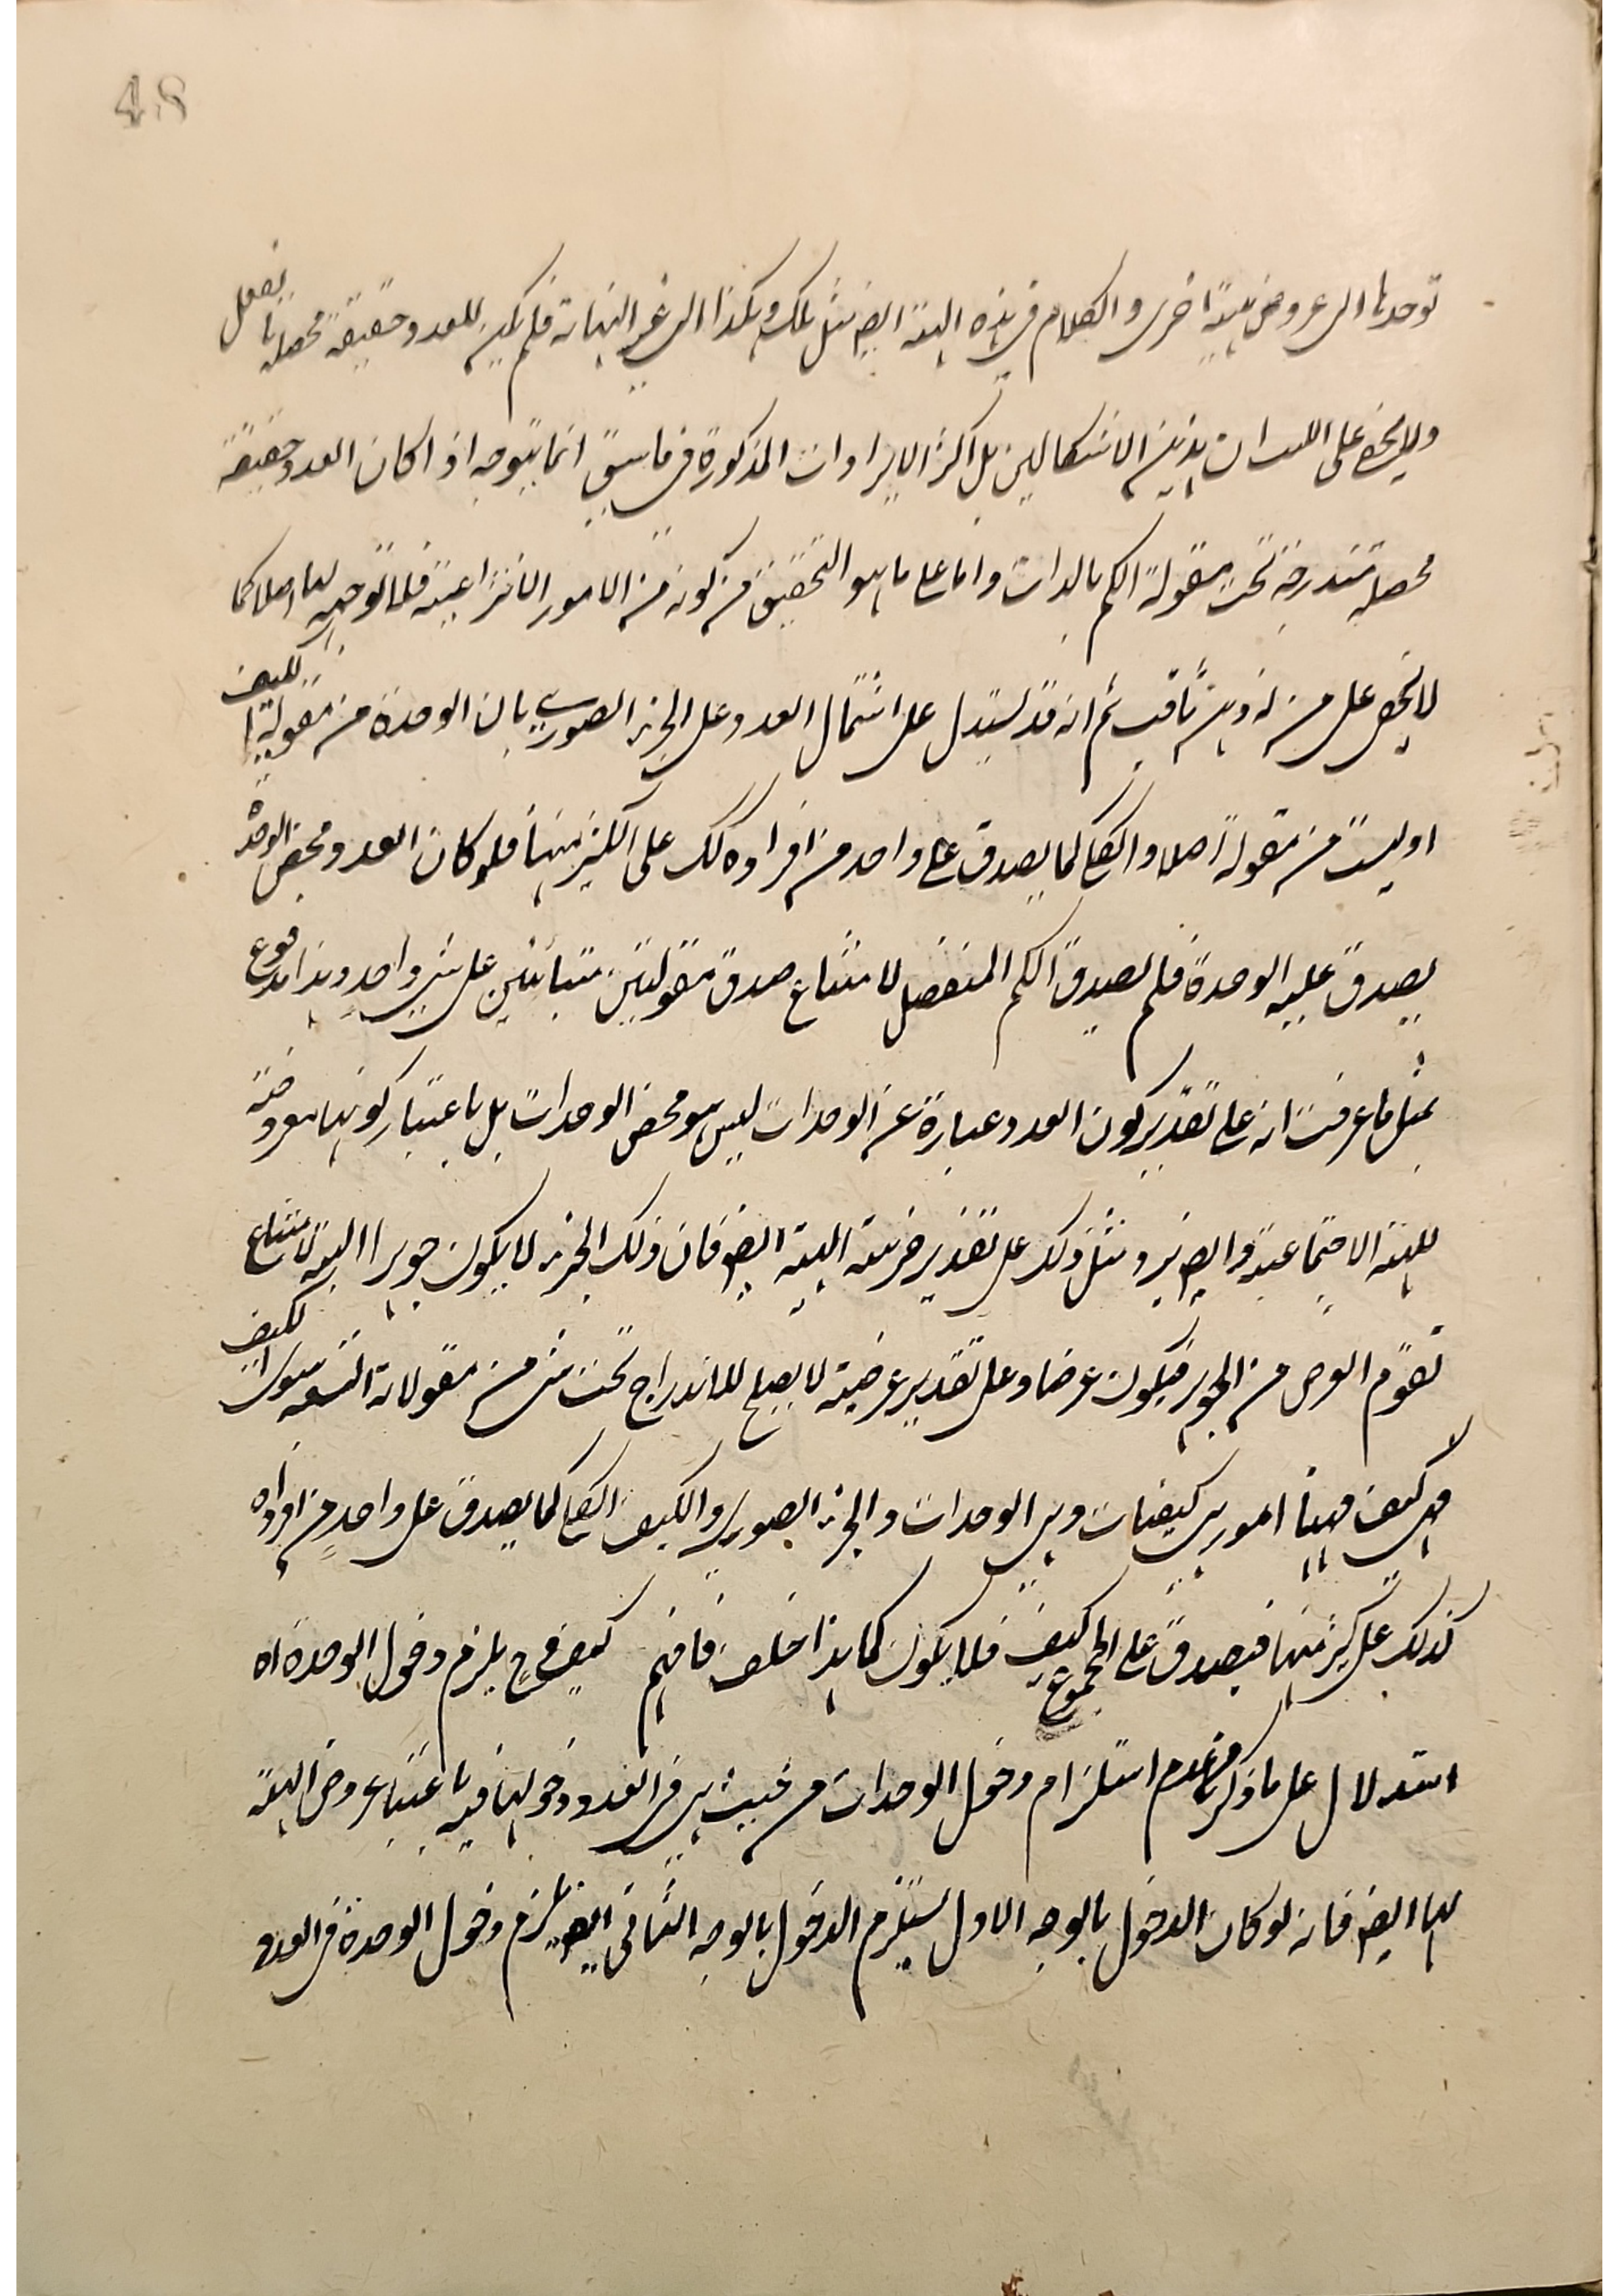 48
توحدها الى عروض هيئة اخرى والكلام فى هذه الهيئة ايضا مثل تلك وهكذا الى غير النهاية فلم يكن للعدد حقيقة محصلة بالفعل
ولا يخفى على اللبيب ان هذين الاشكالين بل اكثر الايرادات المذكورة فى ما سبق انما يتوجه اذا كان العدد حقيقة
محصلة مندرجة تحت مقولة الكم بالذات واما على ما هو التحقيق من كونه من الامور الانتزاعية فلا توجه لها اصلا كما
لا يخفى على من له ذهن ثاقب ثم انه قد يستدل على اشتمال العدد على الجزء الصورى بان الوحدة من مقولة الكيف
او ليست من مقولة اصلا والكلى كما يصدق على واحد من افراده كك على الكثير منها فلو كان العدد محض الوحدة
يصدق عليه الوحدة فلم يصدق الكم المنفصل لامتناع صدق مقولتين متبائنتين على شئ واحد وهذا مدفوع
بمثل ما عرفت انه على تقدير كون العدد عبارة عن الوحدات ليس هو محض الوحدات بل باعتبار كونها معروضة
للهيئة الاجتماعية وايضا يرد مثل ذلك على تقدير جزئية الهيئة ايضا فان ذلك الجزء لا يكون جوهرا البتة لامتناع
تقوم العرض من الجوهر فيكون عرضا وعلى تقدير عرضيته لا يصلح للاندراج تحت شئ من مقولاته التسع سوى الكيف
فهى كيف فههنا امور هى كيفيات وهى الوحدات والجزء الصورى والكيف الكلى كما يصدق على واحد من افراده
كذلك على كثير منها فيصدق على المجموع كيف فلا يكون كما هذا خلف فافهم كيف وح يلزم دخول الوحدة اه
استدلال على ما ذكر من عدم استلزام دخول الوحدات من حيث هى فى العدد دخولها فيه باعتبار عروض الهيئة
لها ايضا فانه لو كان الدخول بالوجه الاول يستلزم الدخول بالوجه الثانى ايضا يلزم دخول الوحدة فى العدد